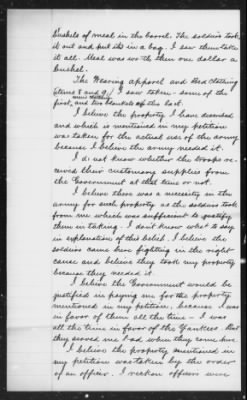 bushels of meal in the barrel. The soldiers took
it out and put it in a bag. I saw them take
it all. Meal was worth then one dollar a
bushel.
The Wearing apparel and Bed Clothing
(Items 8 and 9) I saw taken - some of the
first, and two blankets of the last.
I believe the property I have described
and which is mentioned in my petition
was taken for the actual use of the army
because I believe the army needed it.
I do not know whether the troops re-
ceived their customary supplies from
the Government at this time or not.
I believe there was a necessity in the
army for such property as the soldiers took
from me which was sufficient to justify
them in taking. I don't know what to say
in explanation of this belief. I believe the
soldiers came here fighting in the right
cause and believe they took my property
because they needed it.
I believe the Government would be
justified in paying me for the property
mentioned in my petition, because I was
in favor of them all the time - I was
all the time in favor of the Yankees. But
they served me bad when they come here.
I believe the property mentioned in
my petition was taken by the order
of an officer. I reckon officers were